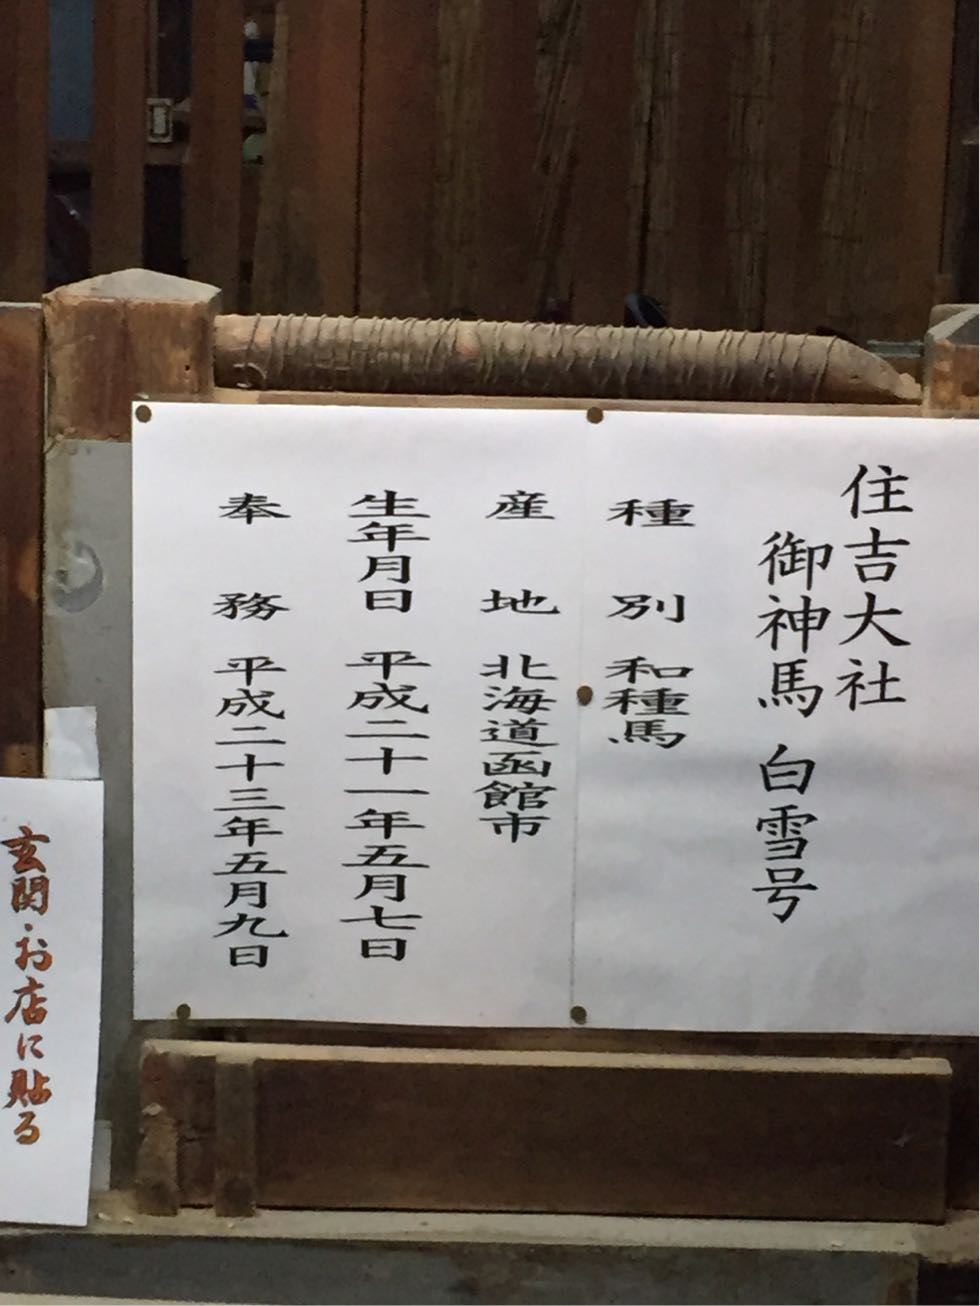 住吉大社
御神馬 白雪号
種別 和種馬
産地 北海道函館市
生年月日 平成二十一年五月七日
奉務 平成二十三年五月九日
玄関・お店に貼る